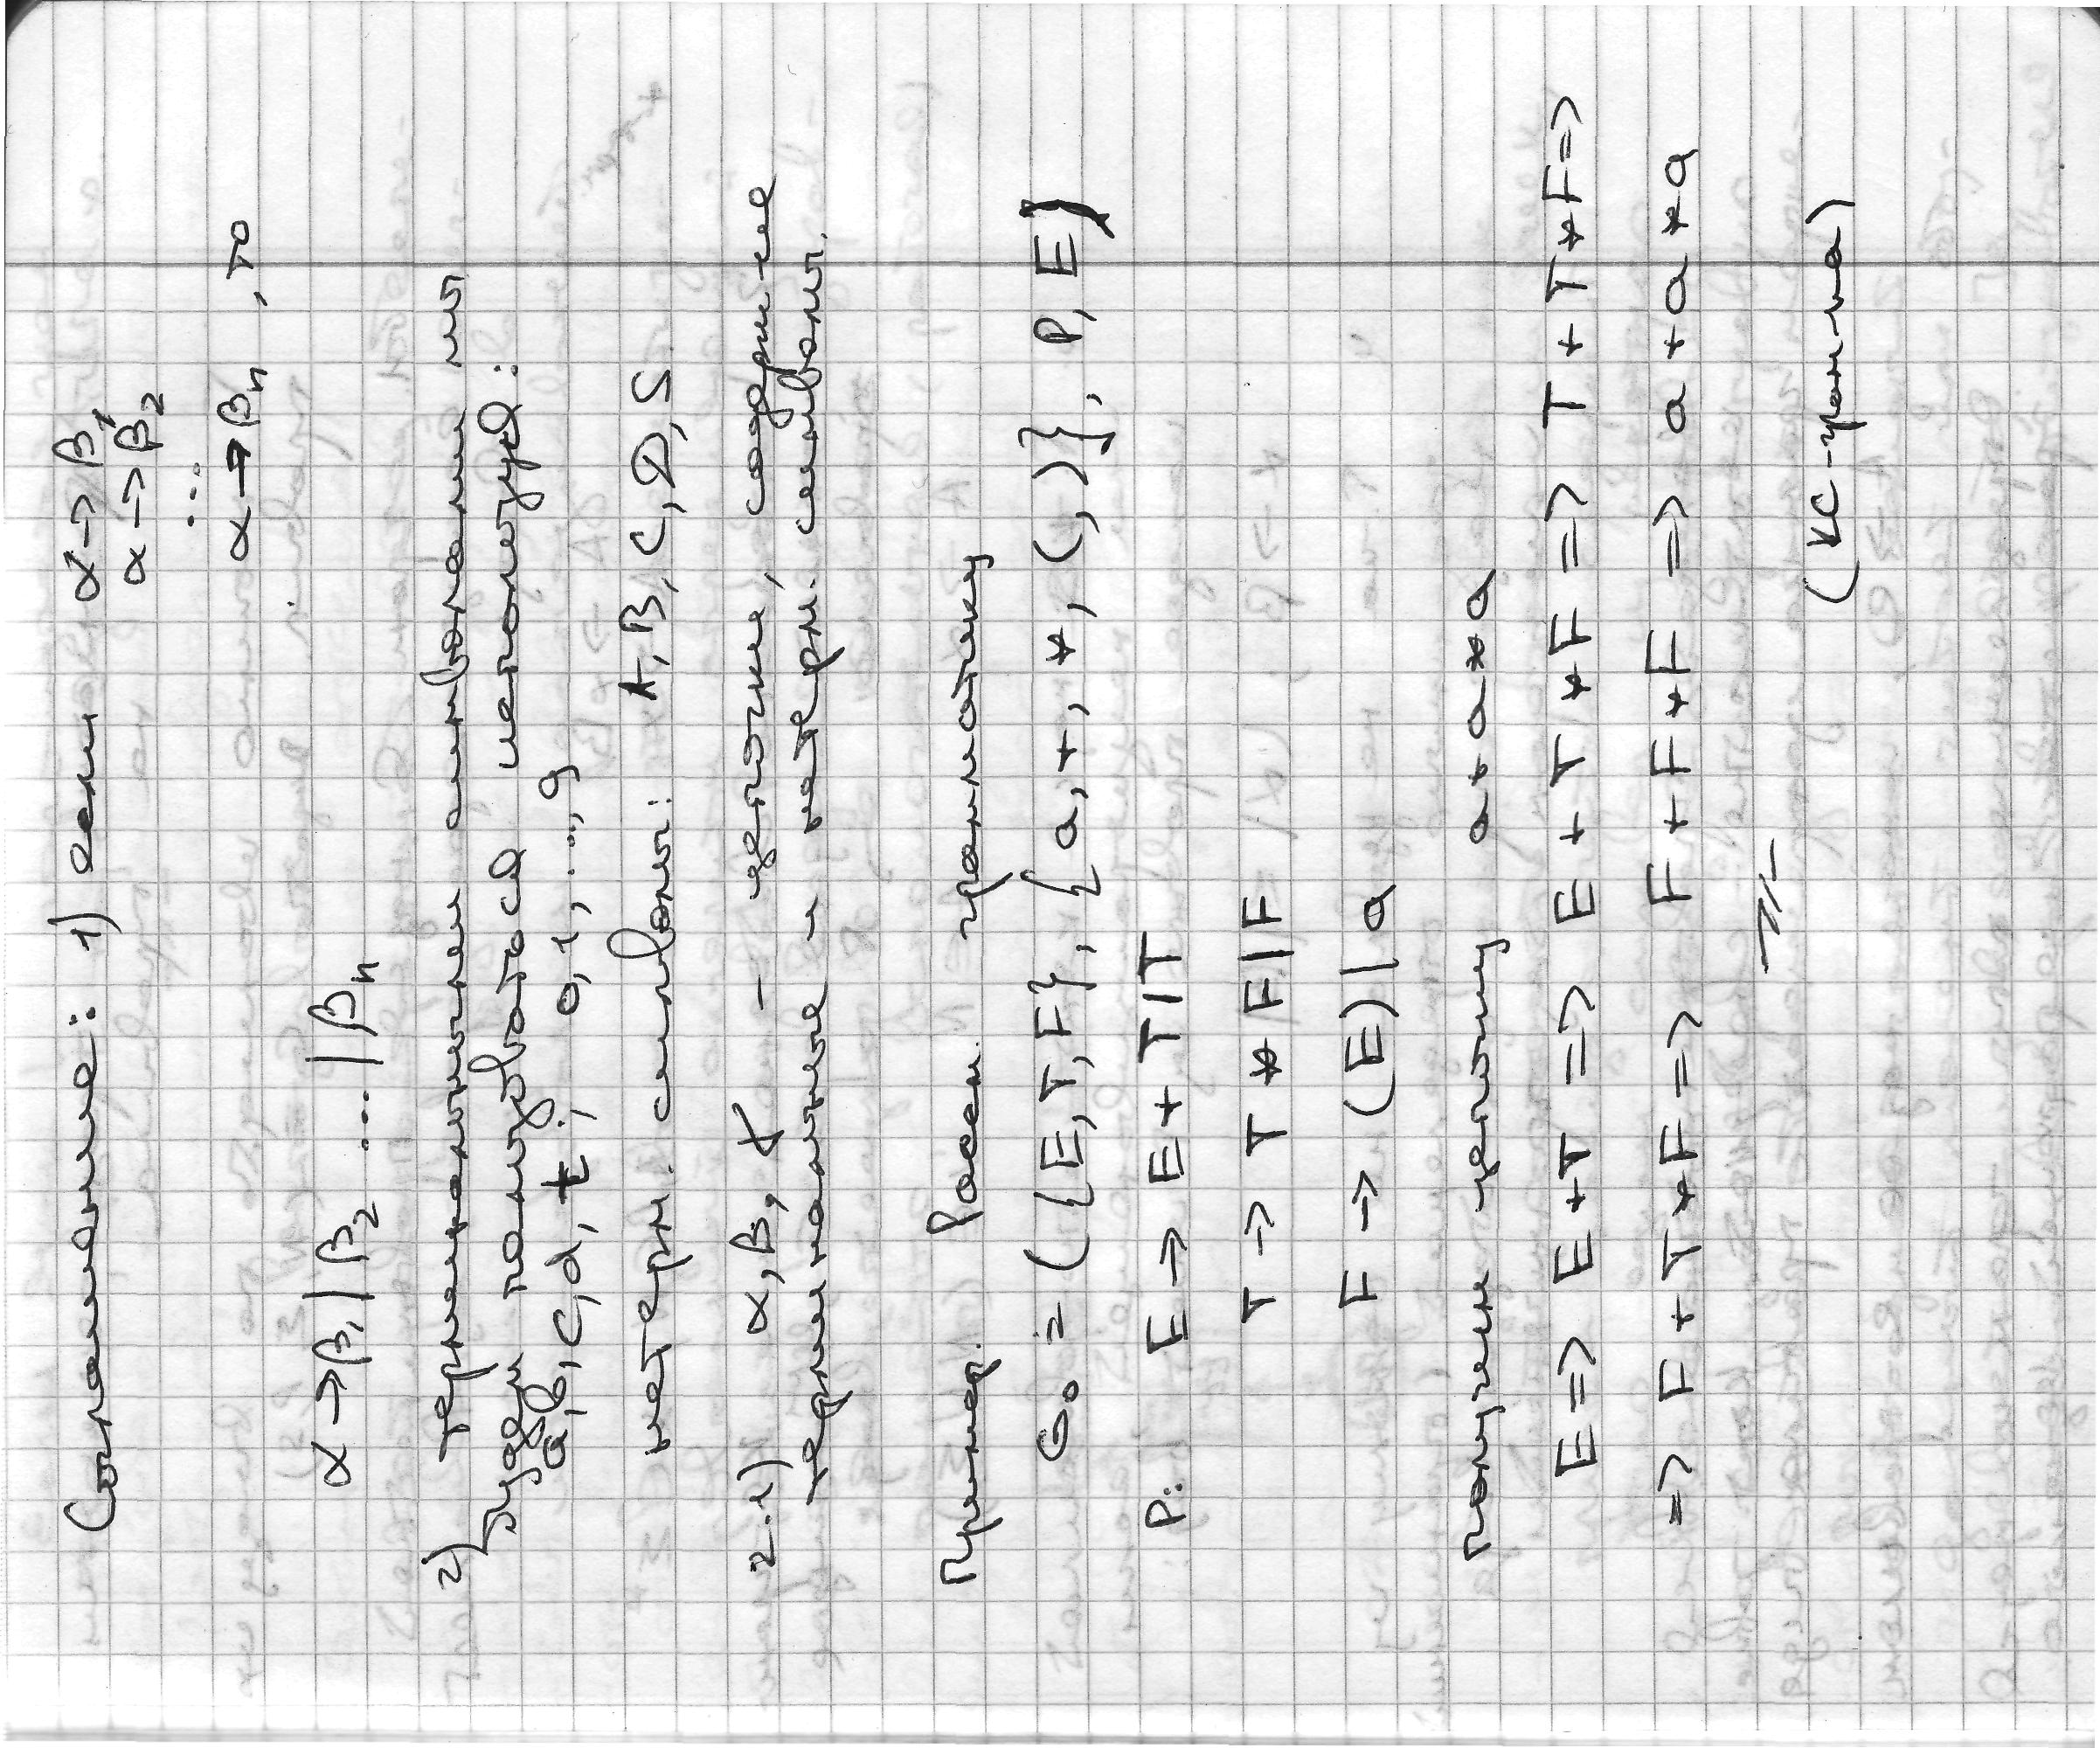 Соглашение: 1) если α → β₁
α → β₂
...
α → βₙ, то
α → β₁ | β₂ .... | βₙ
2) терминальными символами мы
будем пользоваться используя:
a, b, c, d, t; 0, 1, ..., 9
нетерм. символы: A, B, C, D, S
2.1) α, β, γ – цепочки, содерж-ие
терминальные и нетерм. символы.
Пример. Рассм. грамматику
G₀ = ({E, T, F}, {a, +, *, (, )}, P, E)
P: E → E + T | T
T → T * F | F
F → (E) | a
получим цепочку a + a * a
E => E + T => E + T * F => T + T * F =>
=> F + T * F => F + F * F => a + a * a
(КС-грам-ка)